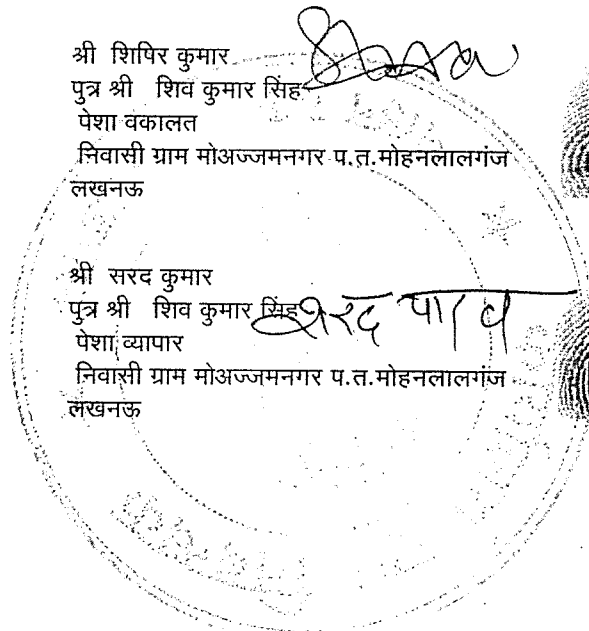 श्री शिपिर कुमार
पुत्र श्री शिव कुमार सिंह
पेशा वकालत
निवासी ग्राम मोअज्जमनगर प.त.मोहनलालगंज
लखनऊ
श्री सरद कुमार
पुत्र श्री शिव कुमार सिंह
शरद यादव
पेशा व्यापार
निवासी ग्राम मोअज्जमनगर प.त.मोहनलालगंज
लखनऊ